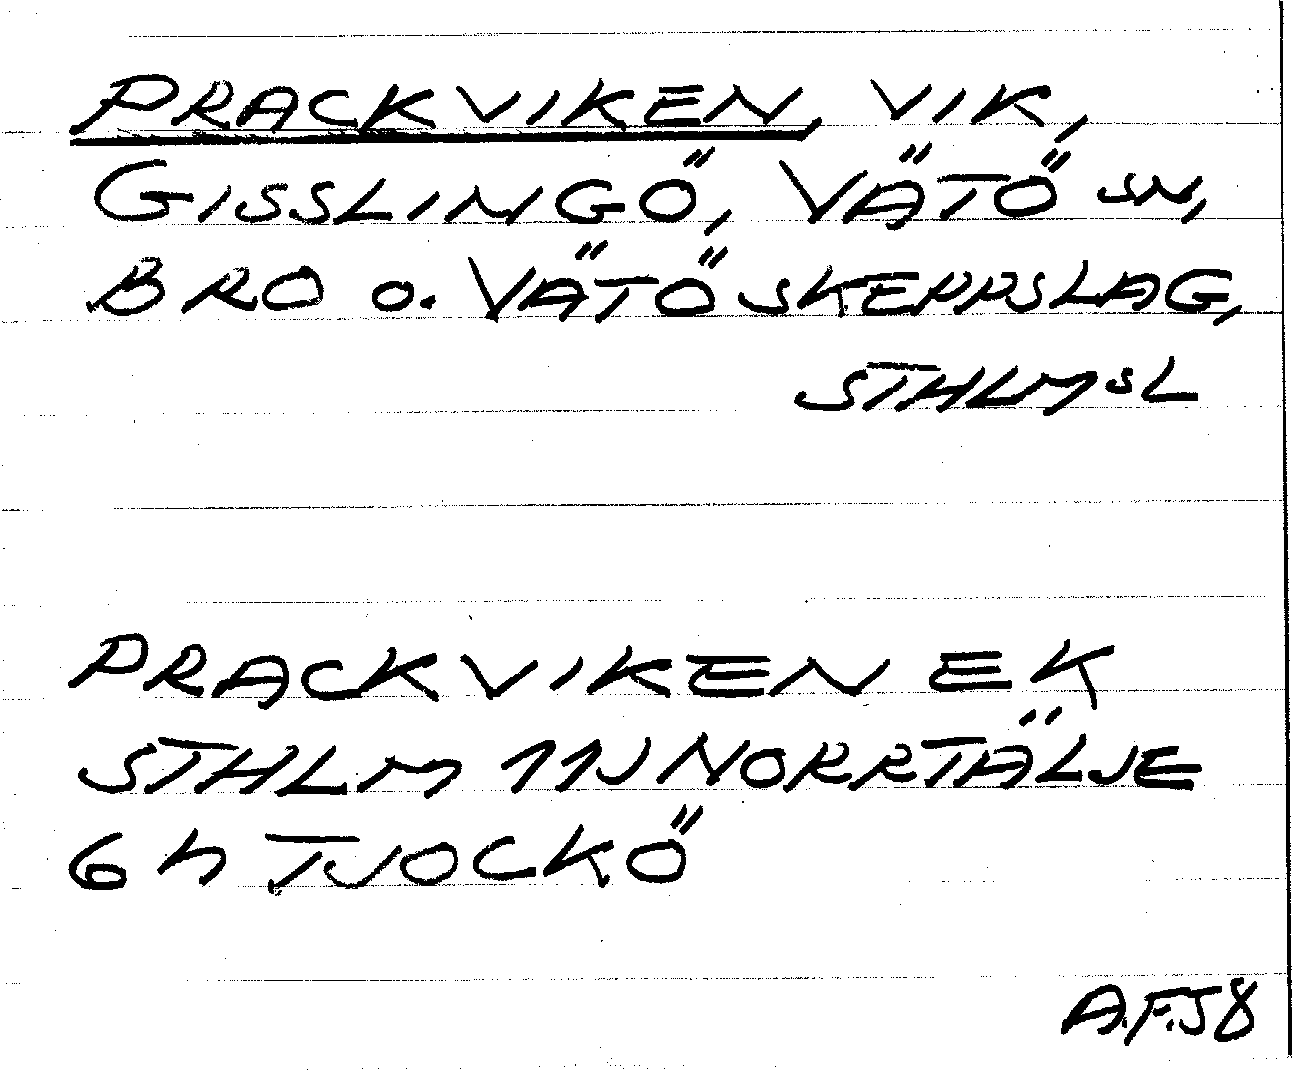 PRACKVIKEN, VIK,
GISSLINGÖ, VÄTÖ SN,
BRO O. VÄTÖ SKEPPSLAG,
STHLMSL
PRACKVIKEN EK
STHLM 11J NORRTÄLJE
6h TJOCKÖ
A.F.58